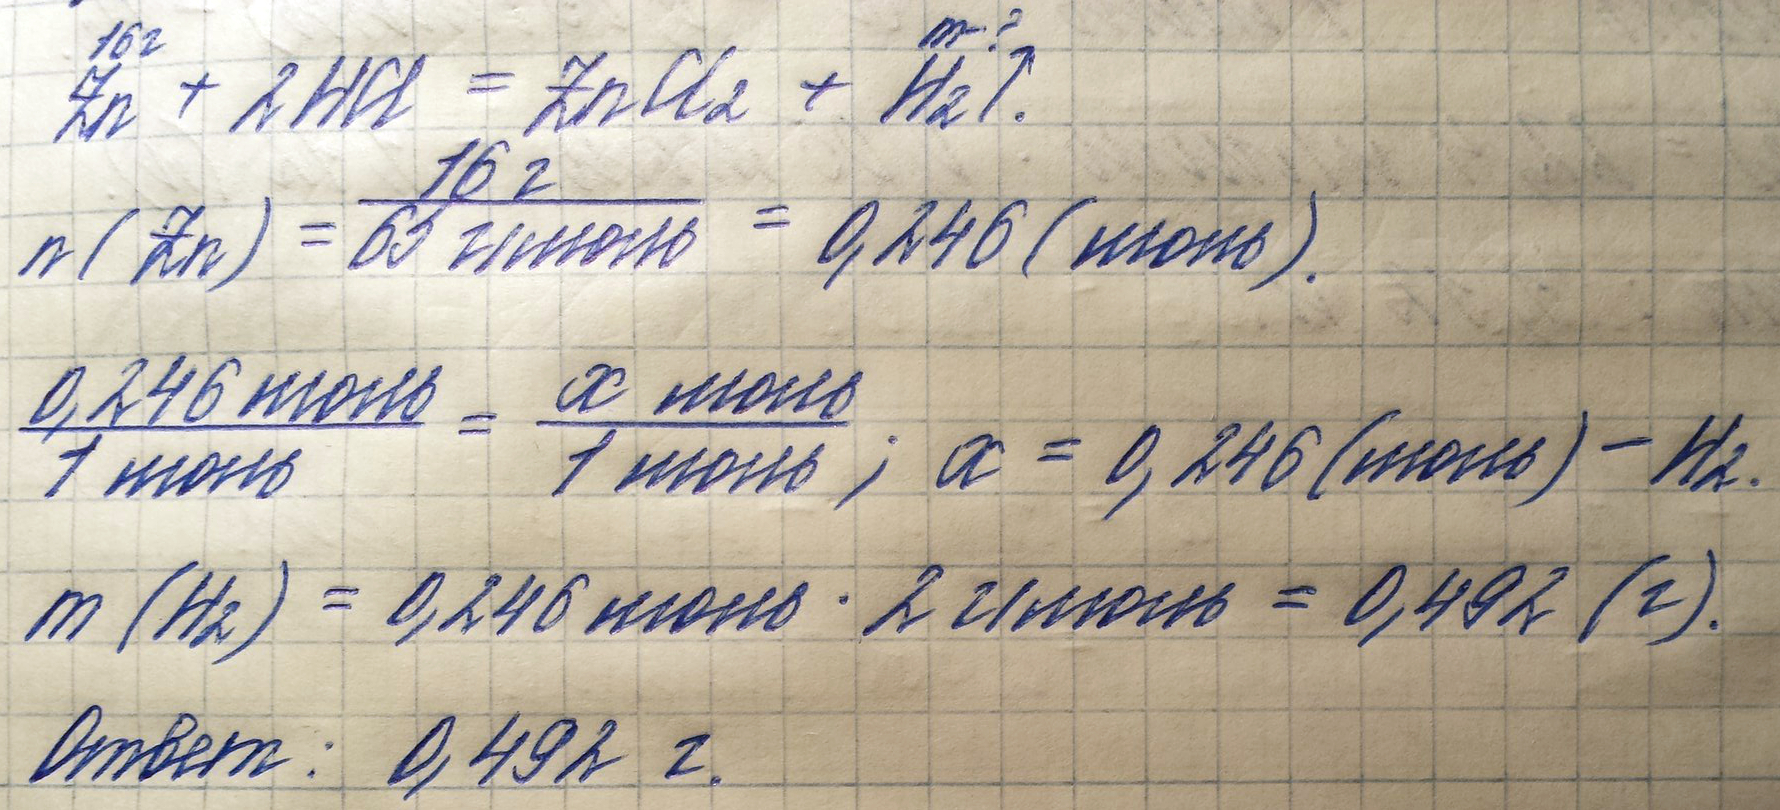 16г m-?
Zn + 2HCl = ZnCl₂ + H₂↑.
n(Zn) = 16 г / 65 г/моль = 0,246 (моль).
0,246 моль / 1 моль = x моль / 1 моль ; x = 0,246 (моль) – H₂.
m (H₂) = 0,246 моль · 2 г/моль = 0,492 (г).
Ответ: 0,492 г.